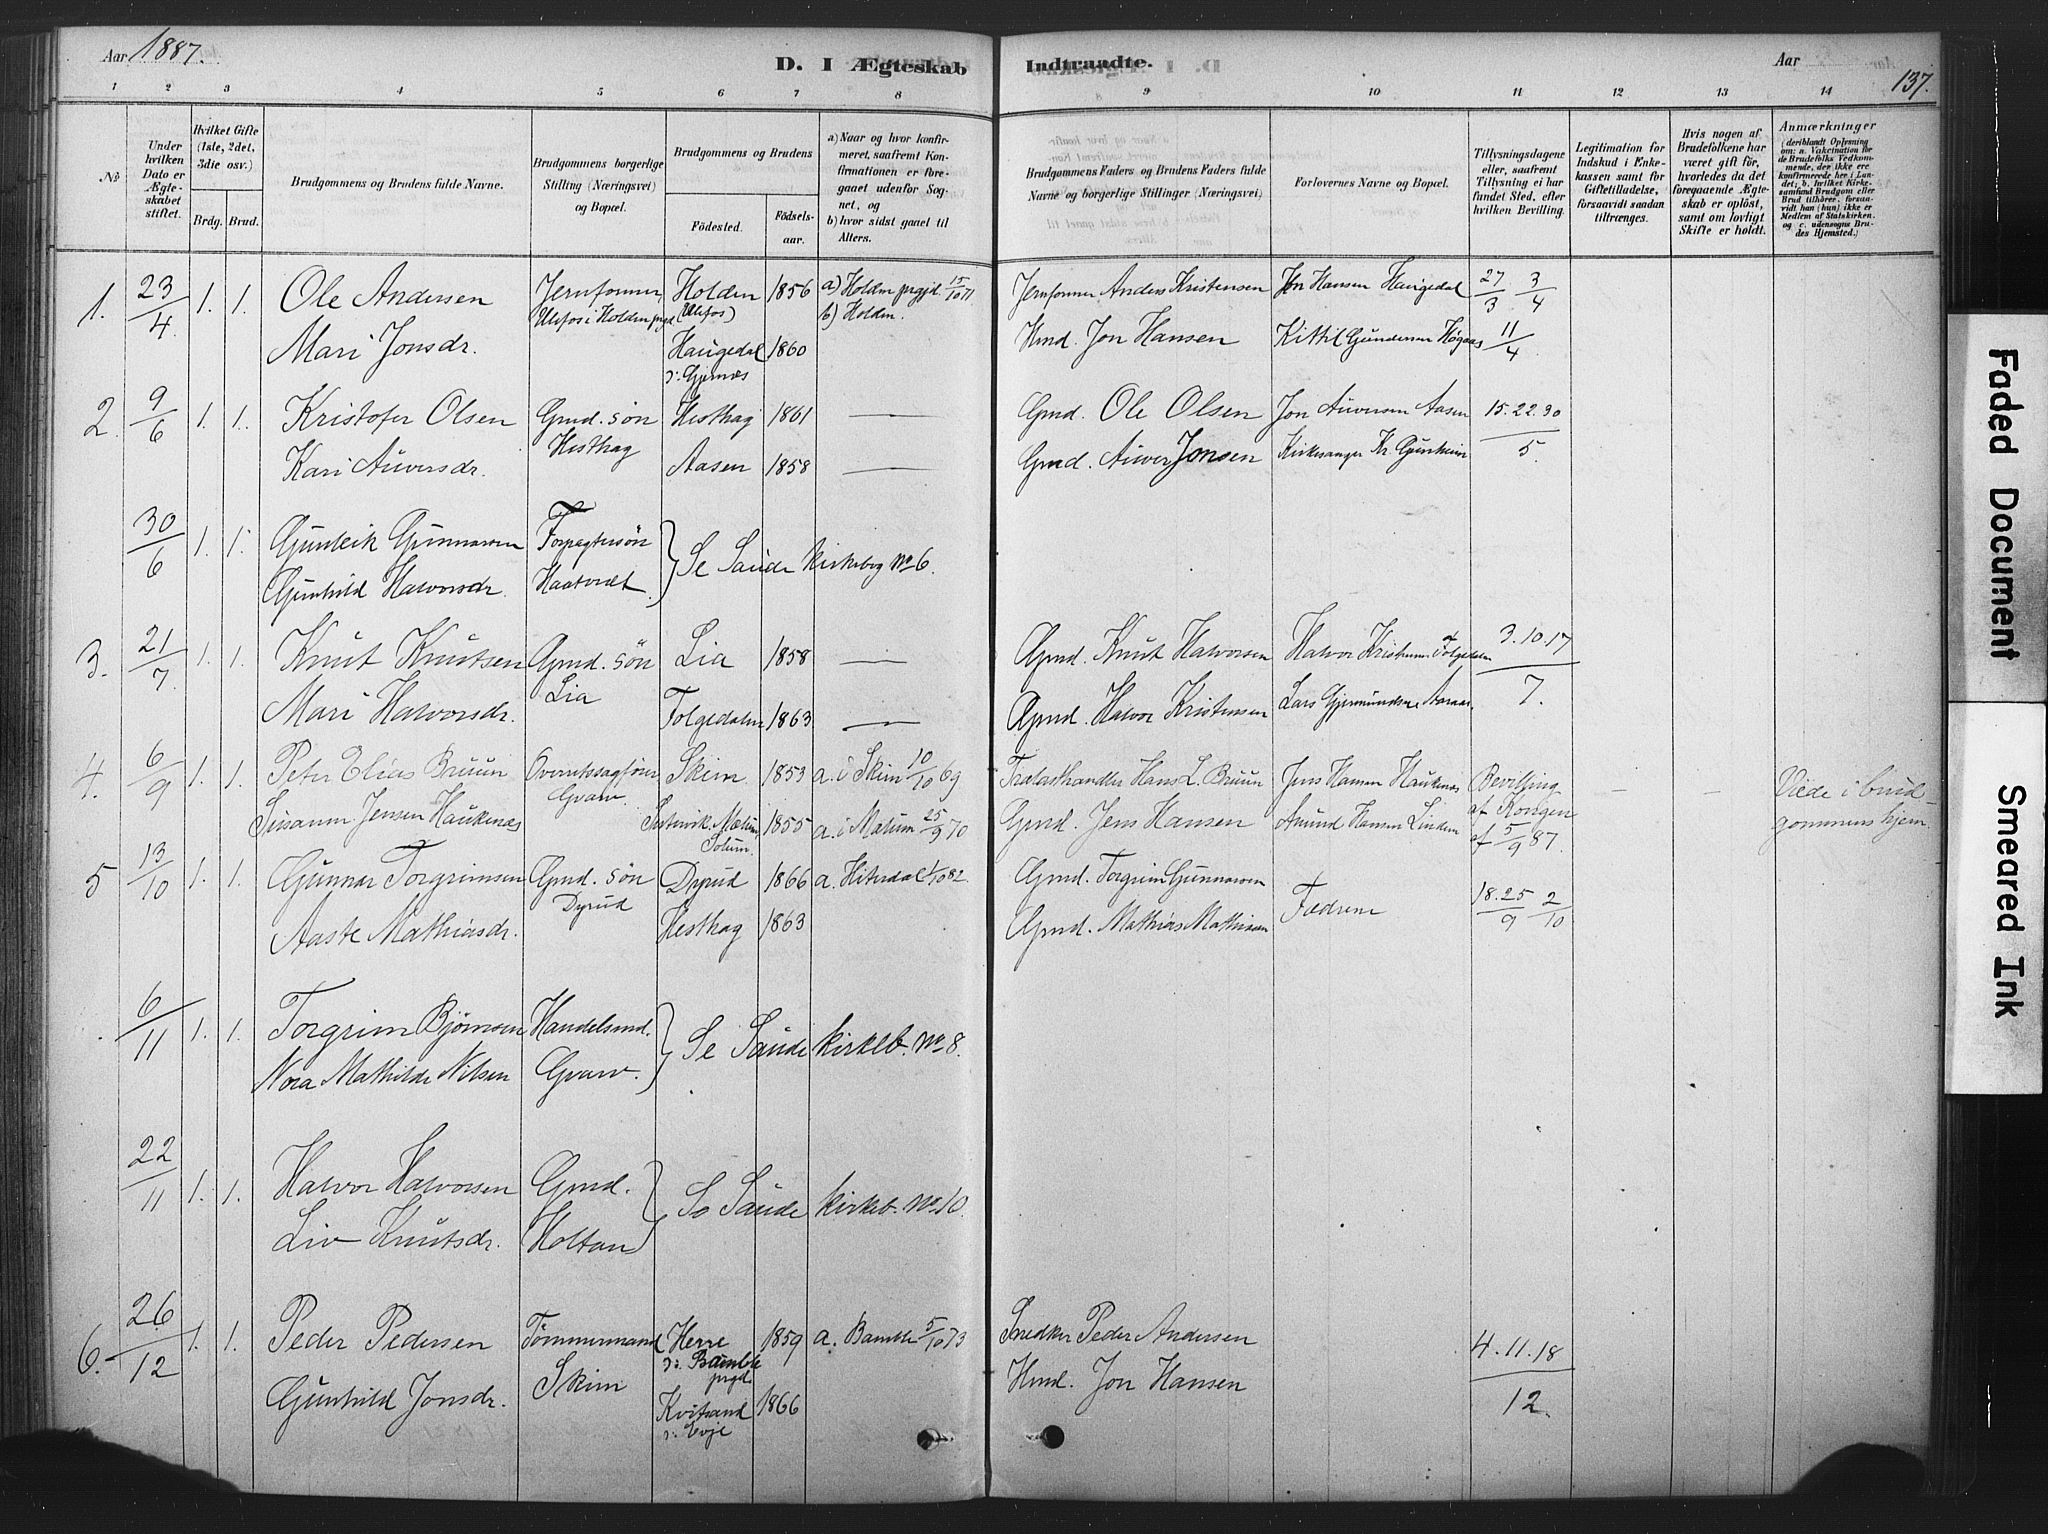 Aar 1887.
D. I Ægteskab
Indtraadte.
Aar
137.
1 2 3 4 5 6 7 8
9 10 11 12 13 14
No
Under hvilken Dato er Ægteskabet stiftet.
Hvilket Gifte (1ste, 2det, 3die osv.)
Brdg. Brud.
Brudgommens og Brudens fulde Navne.
Brudgommens borgerlige Stilling (Næringsvei) og Bopæl.
Brudgommens og Brudens
Fødested.
Fødselsaar.
a) Naar og hvor konfirmeret, saafremt Konfirmationen er foregaaet udenfor Sognet, og
b) hvor sidst gaaet til Alters.
Brudgommens Faders og Brudens Faders fulde Navne og borgerlige Stillinger (Næringsvei)
Forlovernes Navne og Bopæl.
Tillysningsdagene eller, saafremt Tillysning ei har fundet Sted, efter hvilken Bevilling.
Legitimation for Indskud i Enkekassen samt for Giftetilladelse, forsaavidt saadan tiltrænges.
Hvis nogen af Brudefolkene har været gift før, hvorledes da det foregaaende Ægteskab er opløst, samt om lovligt Skifte er holdt.
Anmærkninger (deriblandt Oplysning om: a. Vakcination for de Brudefolks Vedkommende, der ikke ere konfirmerede her i Landet; b. hvilket Kirkesamfund Brudgom eller Brud tilhører, forsaavidt han (hun) ikke er Medlem af Statskirken, og c. udensogns Brudes Hjemsted.)
1. 23/4 1. 1. Ole Andersen Jernformer, Ulefos i Holden prgd Holden (Ulefos) 1856 a) Holden prgjd. 15/10 71 b) Holden. Jernformer Anders Kristensen Jon Hansen Haugedal 27/3 3/4
Mari Jonsdr. Haugedal ɔ: Gjernes 1860 Hmd. Jon Hansen Kittil Gundersen Høgaas 11/4
2. 9/6 1. 1. Kristofer Olsen Gmd. søn Hesthag Hesthag 1861 — Gmd. Ole Olsen Jon Auversen Aasen 15. 22. 30
Kari Auversdr. Aasen 1858 — Gmd. Auver Jonsen Kirkesanger Kr. Gjernheim 5.
30/6 1. 1. Gunleik Gunnarsen Forpagtersøn
Gunhild Halvorsdr. Haatveit. } Se Saude Kirkebog No 6.
3. 21/7. 1. 1. Knut Knutsen Gmd. søn Lia Lia 1858 — Gmd. Knut Halvorsen Halvor Kristensen Folgedalen 3. 10. 17
Mari Halvorsdr. Folgedalen 1863 — Gmd. Halvor Kristensen Lars Gjermundsen Aaraas. 7.
4. 6/9 1. 1. Peter Elias Bruun Overretssagfører Gvarv. Skien 1853 a. i Skien 10/10 69 Trælasthandler Hans L. Bruun Jens Hansen Haukenæs Bevilling af Kongen af 5/9 87. — — Viede i brudgommens hjem.
Susanne Jensen Haukenæs Melum Solum. 1855 a. i Mælum 25/9 70 Gmd. Jens Hansen Amund Hansen Linden
5 13/10 1. 1. Gunnar Torgrimsen Gmd. søn Dyrud Dyrud 1866 a. Hiterdal 1/10 82. Gmd. Torgrim Gunnarsen Fædrene 18. 25/9 2/10
Aaste Mathiasdr. Hesthag 1863 Gmd. Mathias Mathisen
6/11 1. 1. Torgrim Bjørnsen Handelsmd.
Nora Mathilde Nilsen Gvarv. } Se Saude kirkeb. No 8.
22/11 1. 1. Halvor Halvorsen Gmd.
Liv Knutsdr. Holtan } Se Saude kirkeb. No 10.
6. 26/12 1. 1. Peder Pedersen Tømmermand Skien Herre ɔ: Bamble prgd 1859 a. Bamble 5/10 73 Snedker Peder Andersen 4. 11. 18
Gunhild Jonsdr. Kvitsand ɔ: Evje 1866 Hmd. Jon Hansen 12.
Faded Document
Smeared Ink